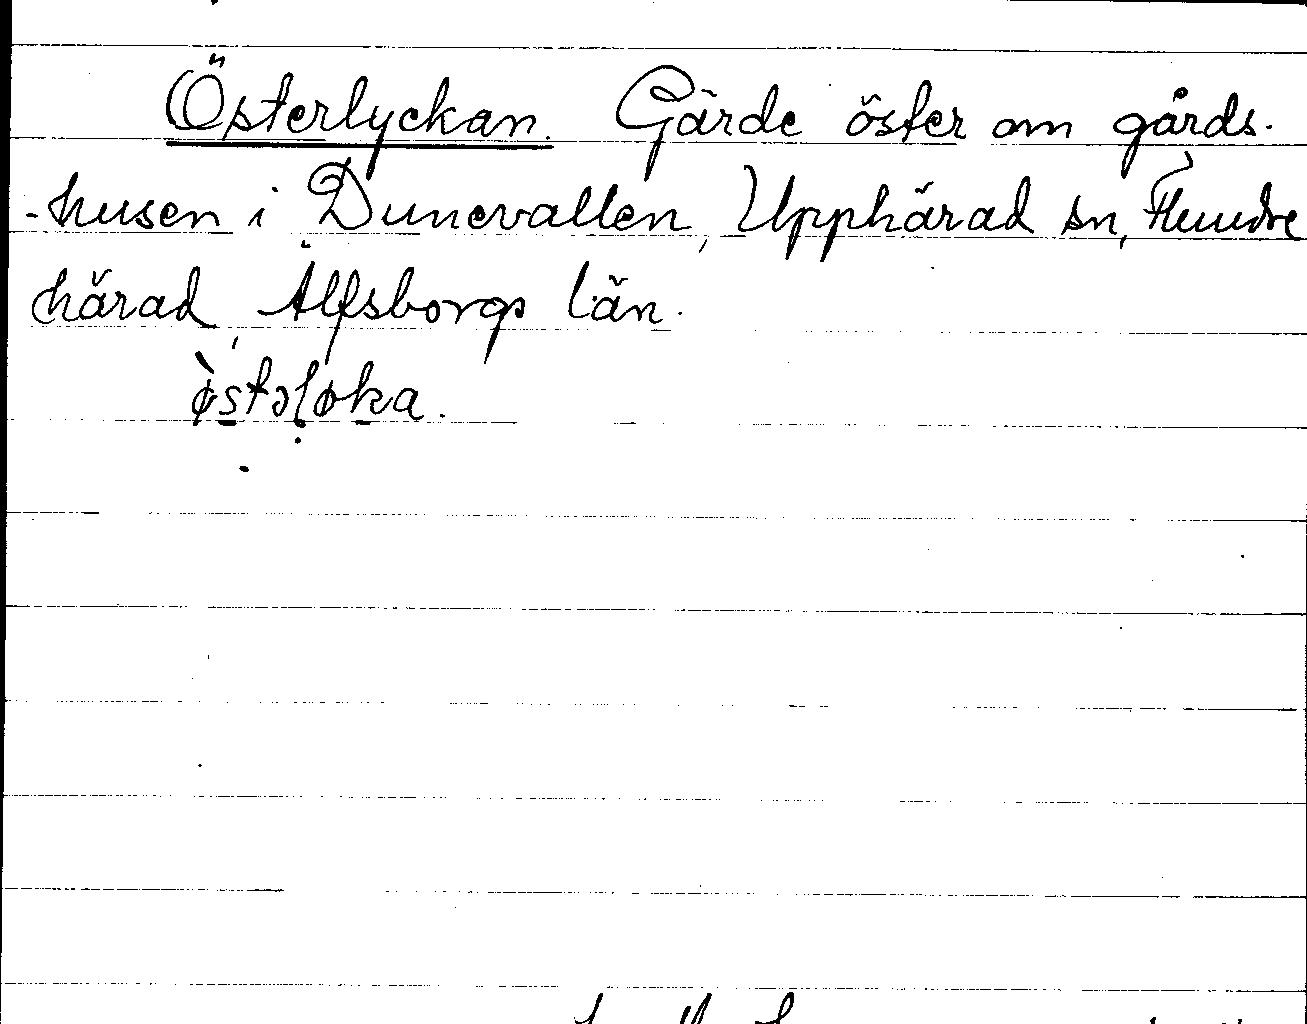 Österlyckan. Gärde öster om gårds-
-husen i Dunevallen, Upphärad sn, Flundre
härad, Älfsborgs län.